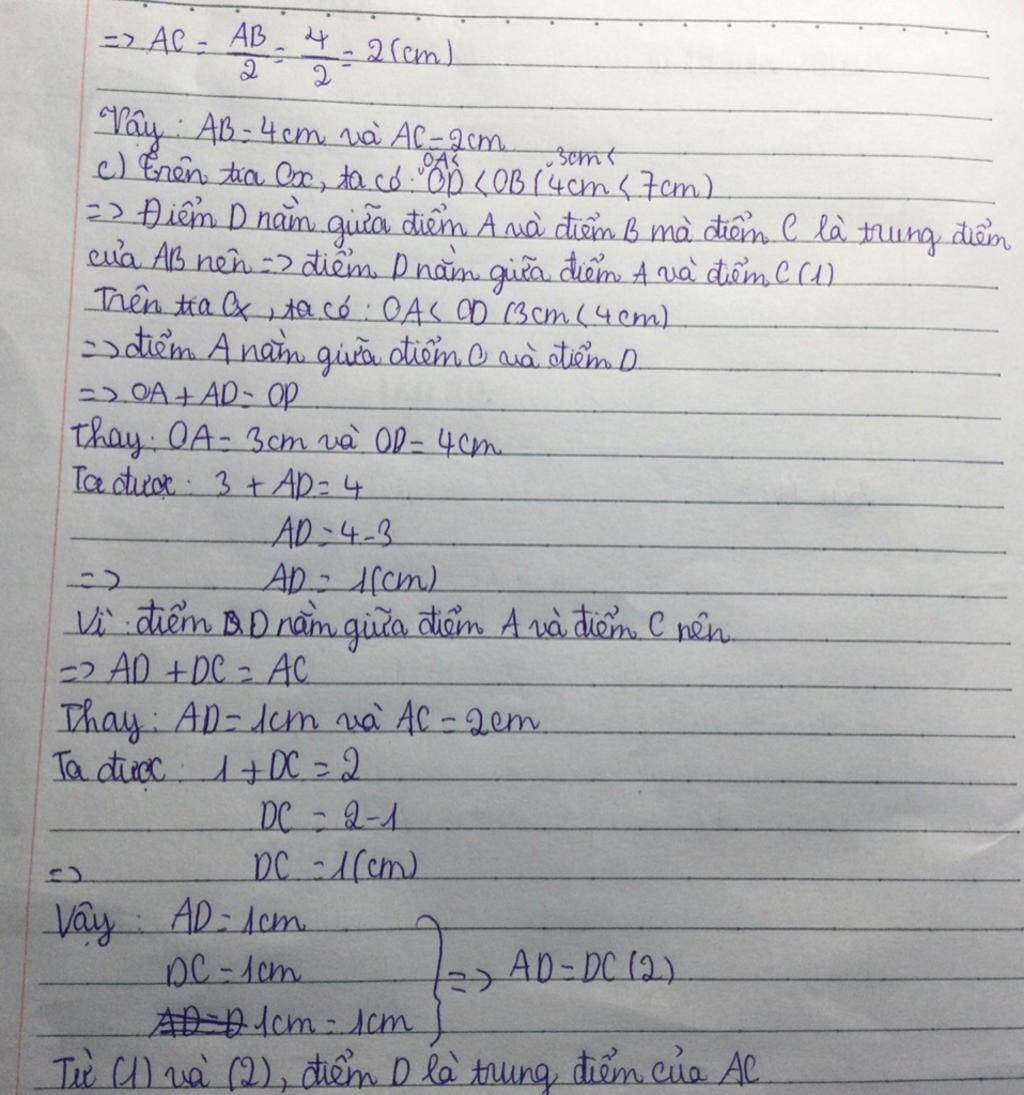 => AC = AB/2 = 4/2 = 2(cm)
Vậy: AB = 4cm và AC = 2cm
c) Trên tia Ox, ta có: OA< OD < OB (3cm < 4cm < 7cm)
=> Điểm D nằm giữa điểm A và điểm B mà điểm C là trung điểm
của AB nên => điểm D nằm giữa điểm A và điểm C (1)
Trên tia Ox, ta có: OA < OD (3cm < 4cm)
=> điểm A nằm giữa điểm O và điểm D
=> OA + AD = OD
Thay: OA = 3cm và OD = 4cm
Ta được: 3 + AD = 4
AD = 4-3
=> AD = 1(cm)
Vì: điểm D nằm giữa điểm A và điểm C nên
=> AD + DC = AC
Thay: AD = 1cm và AC = 2cm
Ta được: 1 + DC = 2
DC = 2-1
=> DC = 1(cm)
Vậy: AD = 1cm
DC = 1cm => AD = DC (2)
AD = D 1cm = 1cm
Từ (1) và (2), điểm D là trung điểm của AC